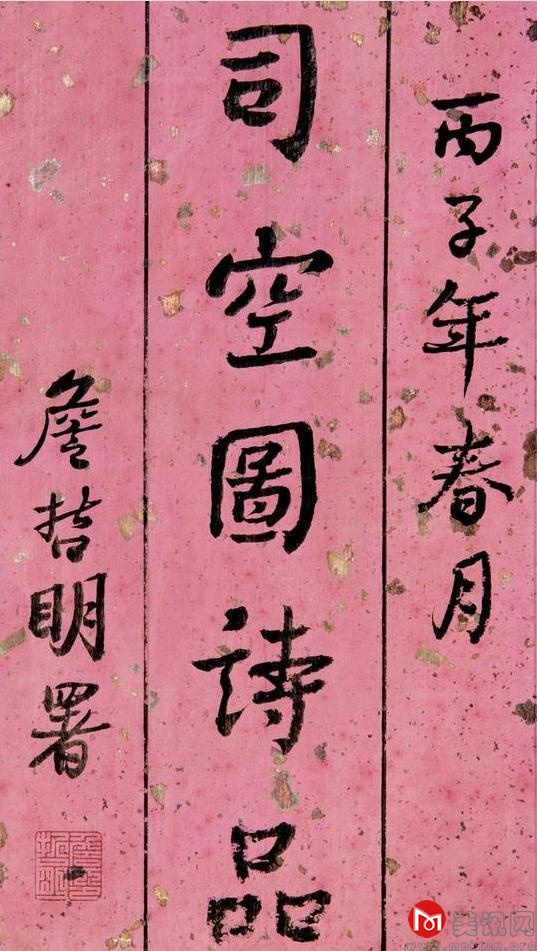 丙子年春月
司空圖詩品
詹哲明署
美讯网
www.meixun.org